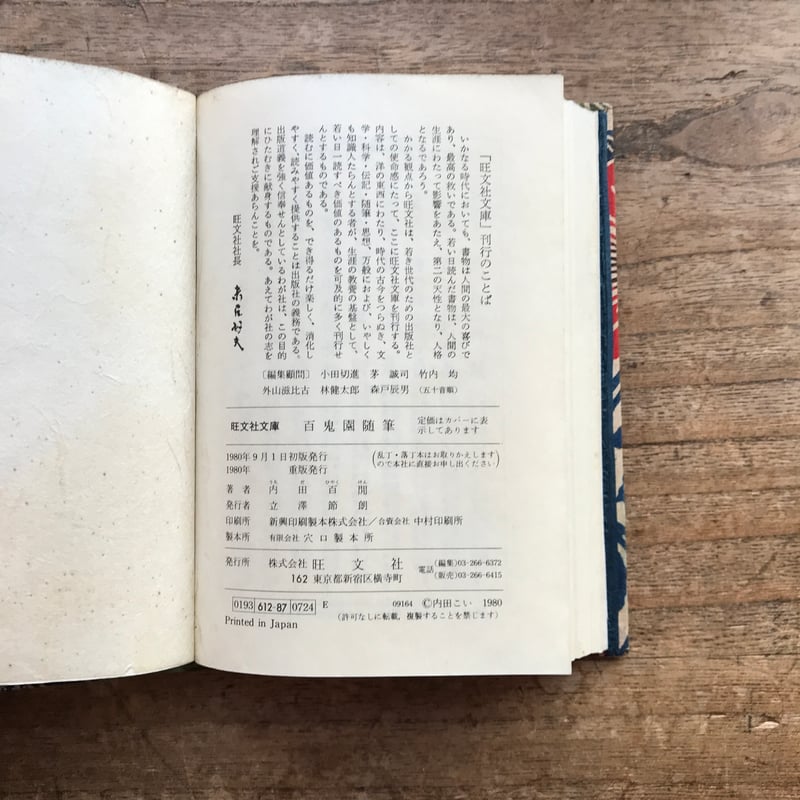 「旺文社文庫」刊行のことば
いかなる時代においても、書物は人間の最大の喜びで
あり、最高の救いである。若い日読んだ書物は、人間の
生涯にわたって影響をあたえ、第二の天性となり、人格
となるであろう。
かかる観点から旺文社は、若き世代のための出版社と
しての使命感にたって、ここに旺文社文庫を刊行する。
内容は、洋の東西にわたり、時代の古今をつらぬき、文
学・科学・伝記・随筆・思想、万般におよび、いやしく
も知識人たらんとする者が、生涯の教養の基盤として、
若い日一読すべき価値のあるものを可及的に多く刊行せ
んとするものである。
読むに価値あるものを、でき得るだけ楽しく、消化し
やすく、読みやすく提供することは出版社の義務である。
出版道義を強く信奉せんとしているわが社は、この目的
にひたむきに献身するものである。あえてわが社の志を
理解されご支援あらんことを。
旺文社社長
赤尾好夫
〔編集顧問〕 小田切進 茅 誠司 竹内 均
外山滋比古 林健太郎 森戸辰男 (五十音順)
旺文社文庫 百鬼園随筆 定価はカバーに表
示してあります
1980年9月1日初版発行
1980年 重版発行
(乱丁・落丁本はお取りかえします
ので本社に直接お申し出ください)
うち だ ひやく けん
著者 内田百閒
発行者 立澤節朗
印刷所 新興印刷製本株式会社/合資会社 中村印刷所
製本所 有限会社 穴口製本所
発行所 株式会社 旺文社
162 東京都新宿区横寺町
電話 (編集)03-266-6372
(販売)03-266-6415
0193 612-87 0724 E 09164 ©内田こい 1980
Printed in Japan (許可なしに転載、複製することを禁じます)